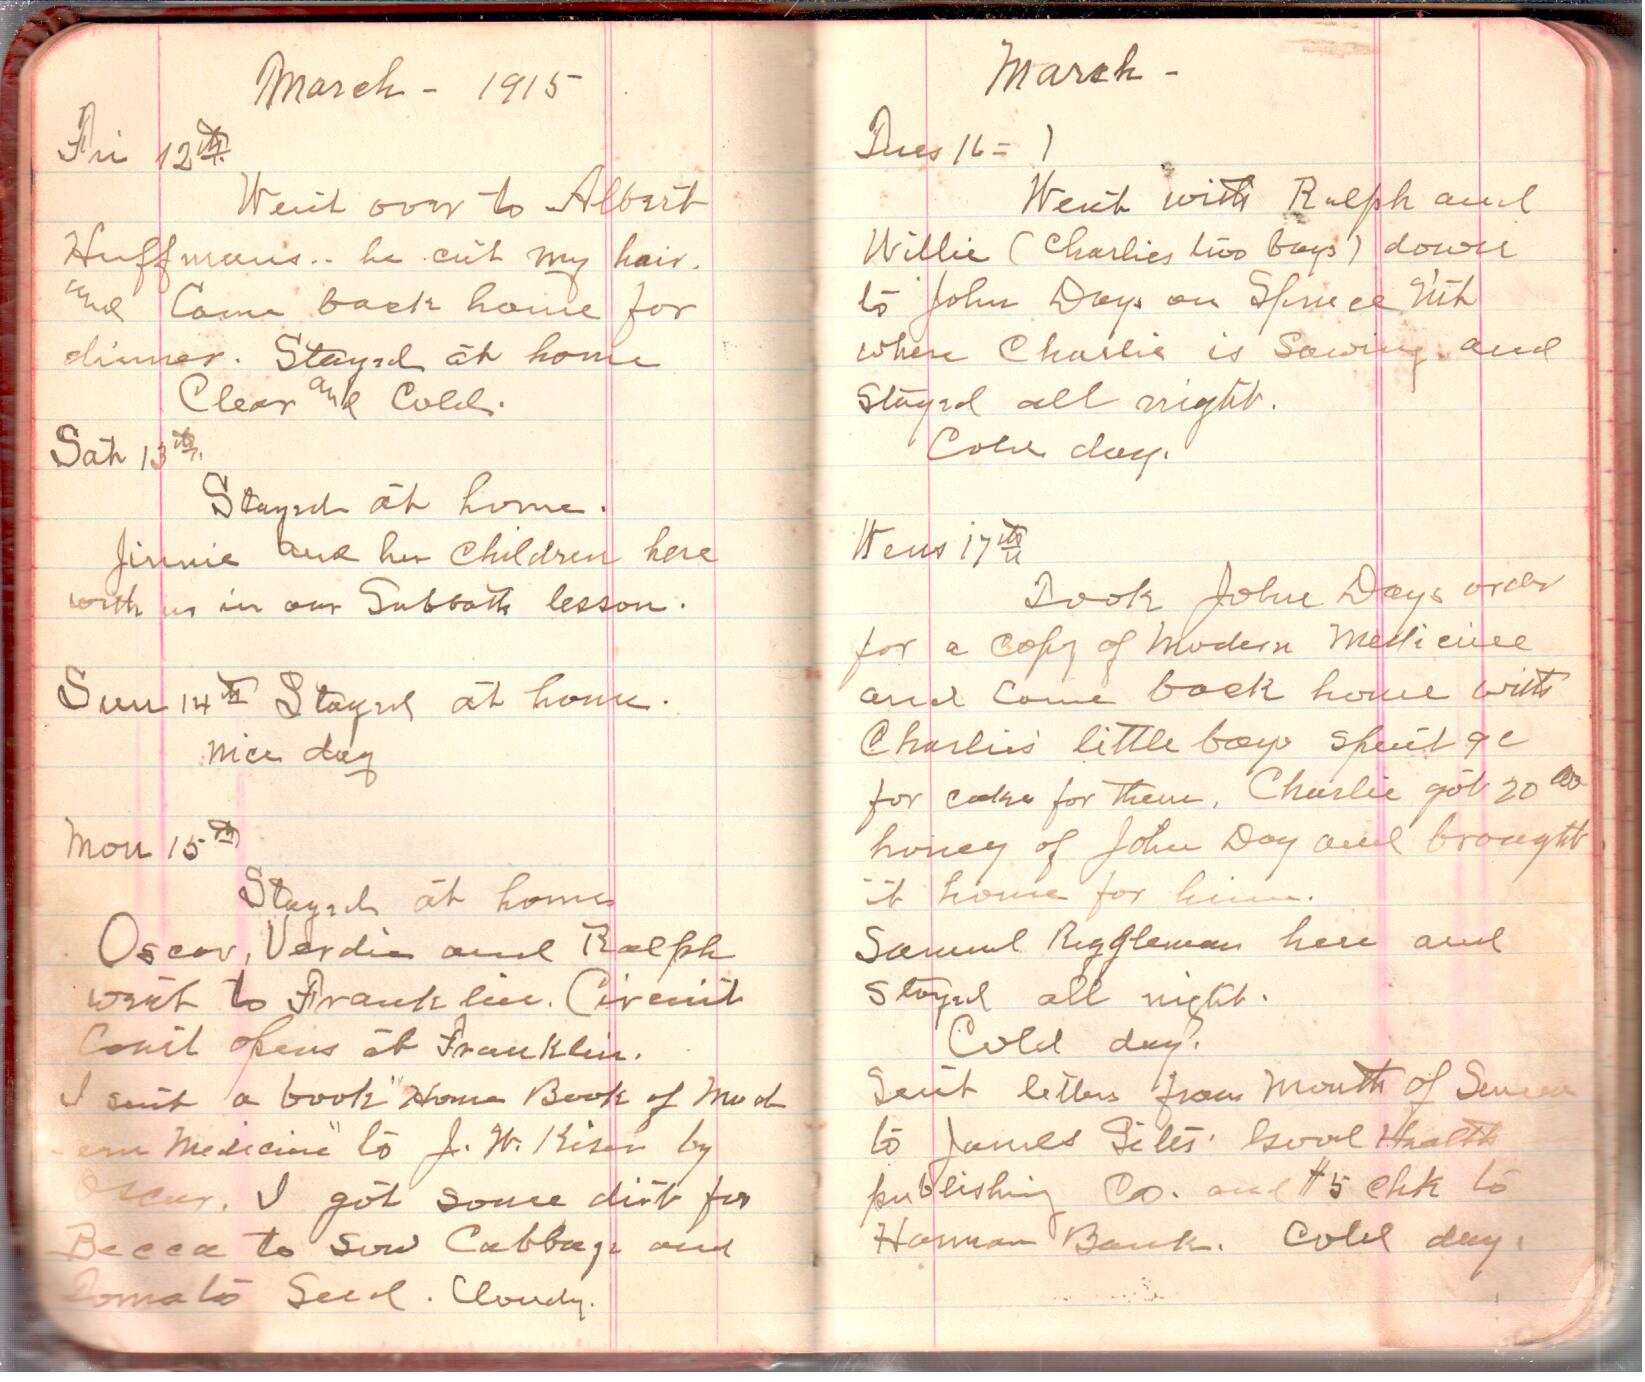 March - 1915
Fri 12th.
Went over to Albert
Huffmans.. he cut my hair.
and Came back home for
dinner. Stayed at home
Clear and Cold.
Sat 13th.
Stayed at home.
Jinnie and her children here
with us in our Sabbath lesson.
Sun 14th Stayed at home.
nice day
Mon 15th
Stayed at home
Oscar, Verdie and Ralph
went to Franklin. Circuit
Court opens at Franklin.
I sent a book "Home Book of Mod
ern Medicine" to J. W. Kiser by
Oscar. I got some dirt for
Becca to sow Cabbage and
Tomato Seed. Cloudy.
March -
Tues 16 =
Went with Ralph and
Willie (Charlies two boys) down
to John Days on Spruce Mt
where Charlie is Sawing and
stayed all night.
Cold day.
Wens 17th
Took John Days order
for a copy of Modern Medicine
and Came back home with
Charlies little boys spent 9c
for cake for them. Charlie got 20
honey of John Day and brought
it home for him.
Samuel Riggleman here and
stayed all night.
Cold day.
Sent letters from Mouth of Seneca
to James Sites. Good Health
publishing Co. and $5 chk to
Harman Bank. Cold day.